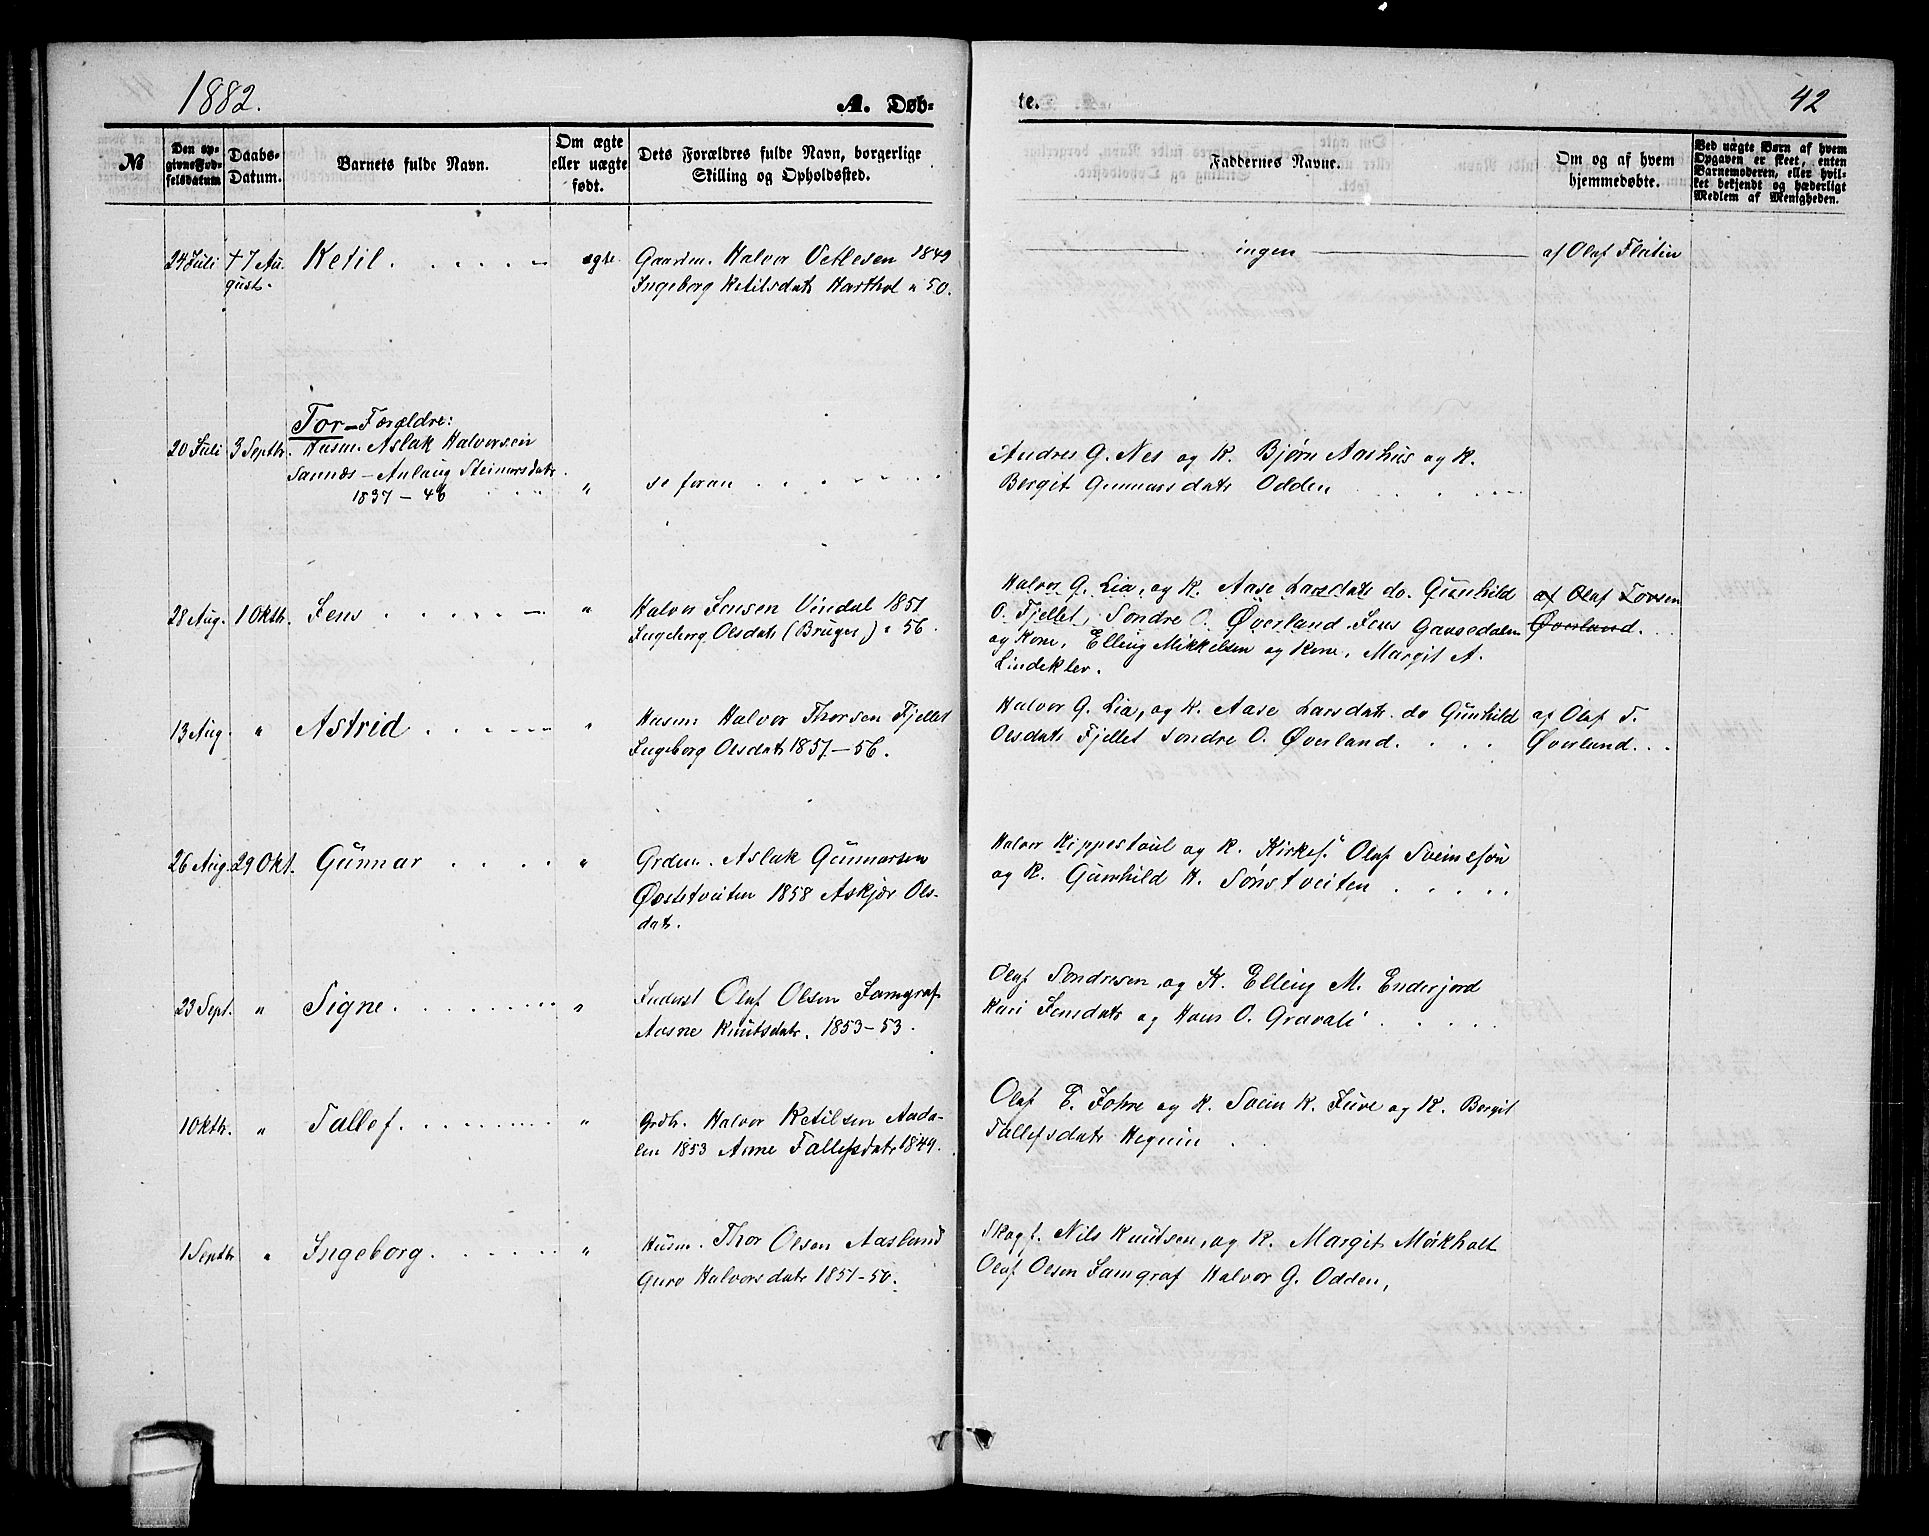 1882.
A. Døb-
te.
42
No
Den op-
givne Fød-
selsdatum
Daabs-
Datum.
Barnets fulde Navn.
Om ægte
eller uægte
født.
Dets Forældres fulde Navn, borgerlige
Stilling og Opholdssted.
Faddernes Navne.
Om og af hvem
hjemmedøbte.
Ved uægte Børn af hvem
Opgaven er skeet, enten
Barnemoderen, eller hvil-
ket bekjendt og hæderligt
Medlem af Menigheden.
24 Juli
† 7 Au-
gust.
Ketil.
ægte
Gaardm. Halvor Vetlesen 1849
Ingeborg Ketilsdatr Harthol " 50.
ingen
af Olaf Flatin
20 Juli
3 Septbr.
Tor – Forældre:
Husm. Aslak Halvorsen
Sannæs – Anlaug Steinarsdatr.
1837 – 46
"
se foran
Andres G. Nes og K. Bjørn Aashus og K.
Bergit Gunnarsdatr Odden
28 Aug.
1 Oktbr.
Jens
"
Halvor Jensen Vindal 1851
Ingeborg Olsdatr (Bruger) " 56.
Halvor G. Lia, og K. Aase Larsdatr do. Gunhild
O. Fjellet, Sondre O. Øverland Jens Gaasedalen
og Kone, Elling Mikkelsen og Kone, Margit A.
Lindeklev.
af Olaf Torsen
Øverland.
13 Aug.
"
Astrid
"
Husm. Halvor Thorsen Fjellet
Ingeborg Olsdatr 1851 – 56.
Halvor G. Lia, og K. Aase Larsdatr. do Gunhild
Olsdatr Fjellet Sondre O. Øverland.
af Olaf T.
Øverland.
26 Aug.
29 Okt.
Gunnar
"
Grdm. Aslak Gunnarsen
Øvstetveiten 1858 Askjær Ols-
datr.
Halvor Kippestaul og K. Kirkes. Olaf Sveinesøn
og K. Gunhild H. Sønstveiten
23 Sept.
"
Signe.
"
Inderst Olaf Olsen Jamgraf
Aasne Knutsdatr. 1853 – 53.
Olaf Sondresen og K. Elling M. Enderjord
Kari Jensdatr og Hans O. Gravali
1 Oktbr.
"
Tallef.
"
Grdb. Halvor Ketilsen Aada-
len 1853 Anne Tallefsdatr 1849.
Olaf E. Johre og K. Svein K. Juve og K. Bergit
Tallefsdatr Hegnin
1 Septbr
"
Ingeborg.
"
Husm. Thor Olsen Aasland
Guro Halvorsdatr 1851 – 50.
Skogf. Nils Knutsen, og K. Margit Mørkholt
Olaf Olsen Jamgraf Halvor G. Odden,